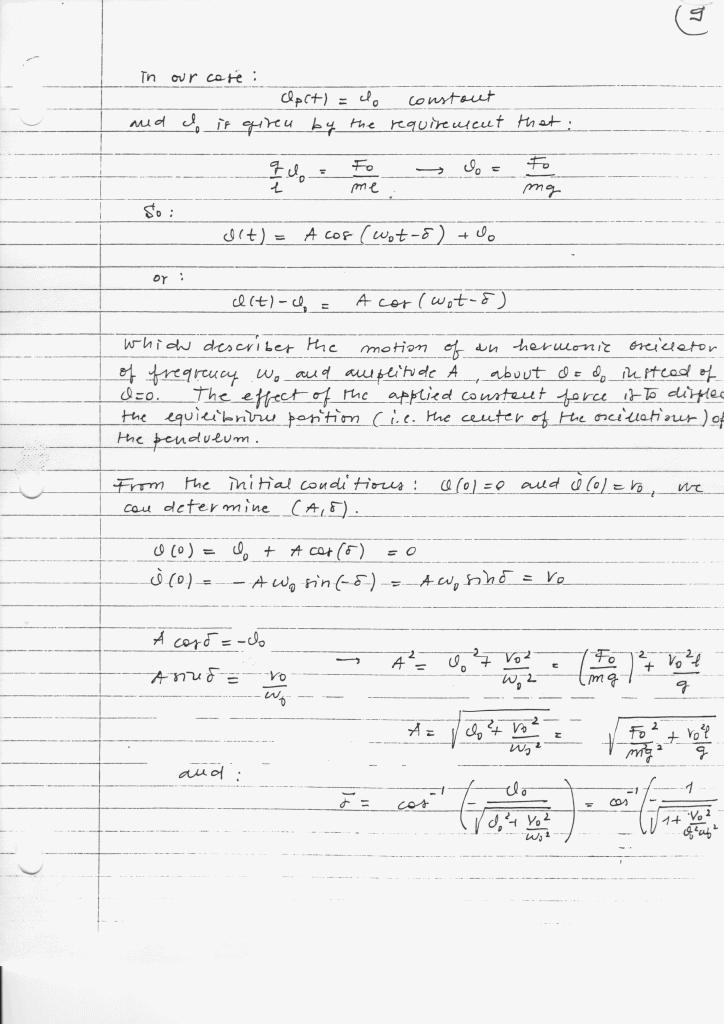 9
In our case :
ϑp(t) = ϑ₀ constant
and ϑ₀ is given by the requirement that :
g/l ϑ₀ = F₀/ml → ϑ₀ = F₀/mg
So :
ϑ(t) = A cos (ω₀t-δ) + ϑ₀
or :
ϑ(t)-ϑ₀ = A cos (ω₀t-δ)
which describes the motion of an harmonic oscillator
of frequency ω₀ and amplitude A , about ϑ = ϑ₀ instead of
ϑ=0. The effect of the applied constant force is to displac
the equilibrium position ( i.e. the center of the oscillations ) of
the pendulum .
From the initial conditions : ϑ(0) = 0 and ϑ̇(0) = v₀ , we
can determine (A,δ) .
ϑ(0) = ϑ₀ + A cos(δ) = 0
ϑ̇(0) = - A ω₀ sin(-δ) = A ω₀ sin δ = v₀
A cos δ = -ϑ₀
A sin δ = v₀/ω₀ → A² = ϑ₀² + v₀²/ω₀² = (F₀/mg)² + v₀²l/g
A = √(ϑ₀² + v₀²/ω₀²) = √(F₀²/m²g² + v₀²l/g)
and :
δ = cos⁻¹ (- ϑ₀/√(ϑ₀² + v₀²/ω₀²)) = cos⁻¹ (- 1/√(1 + v₀²/ϑ₀²ω₀²)